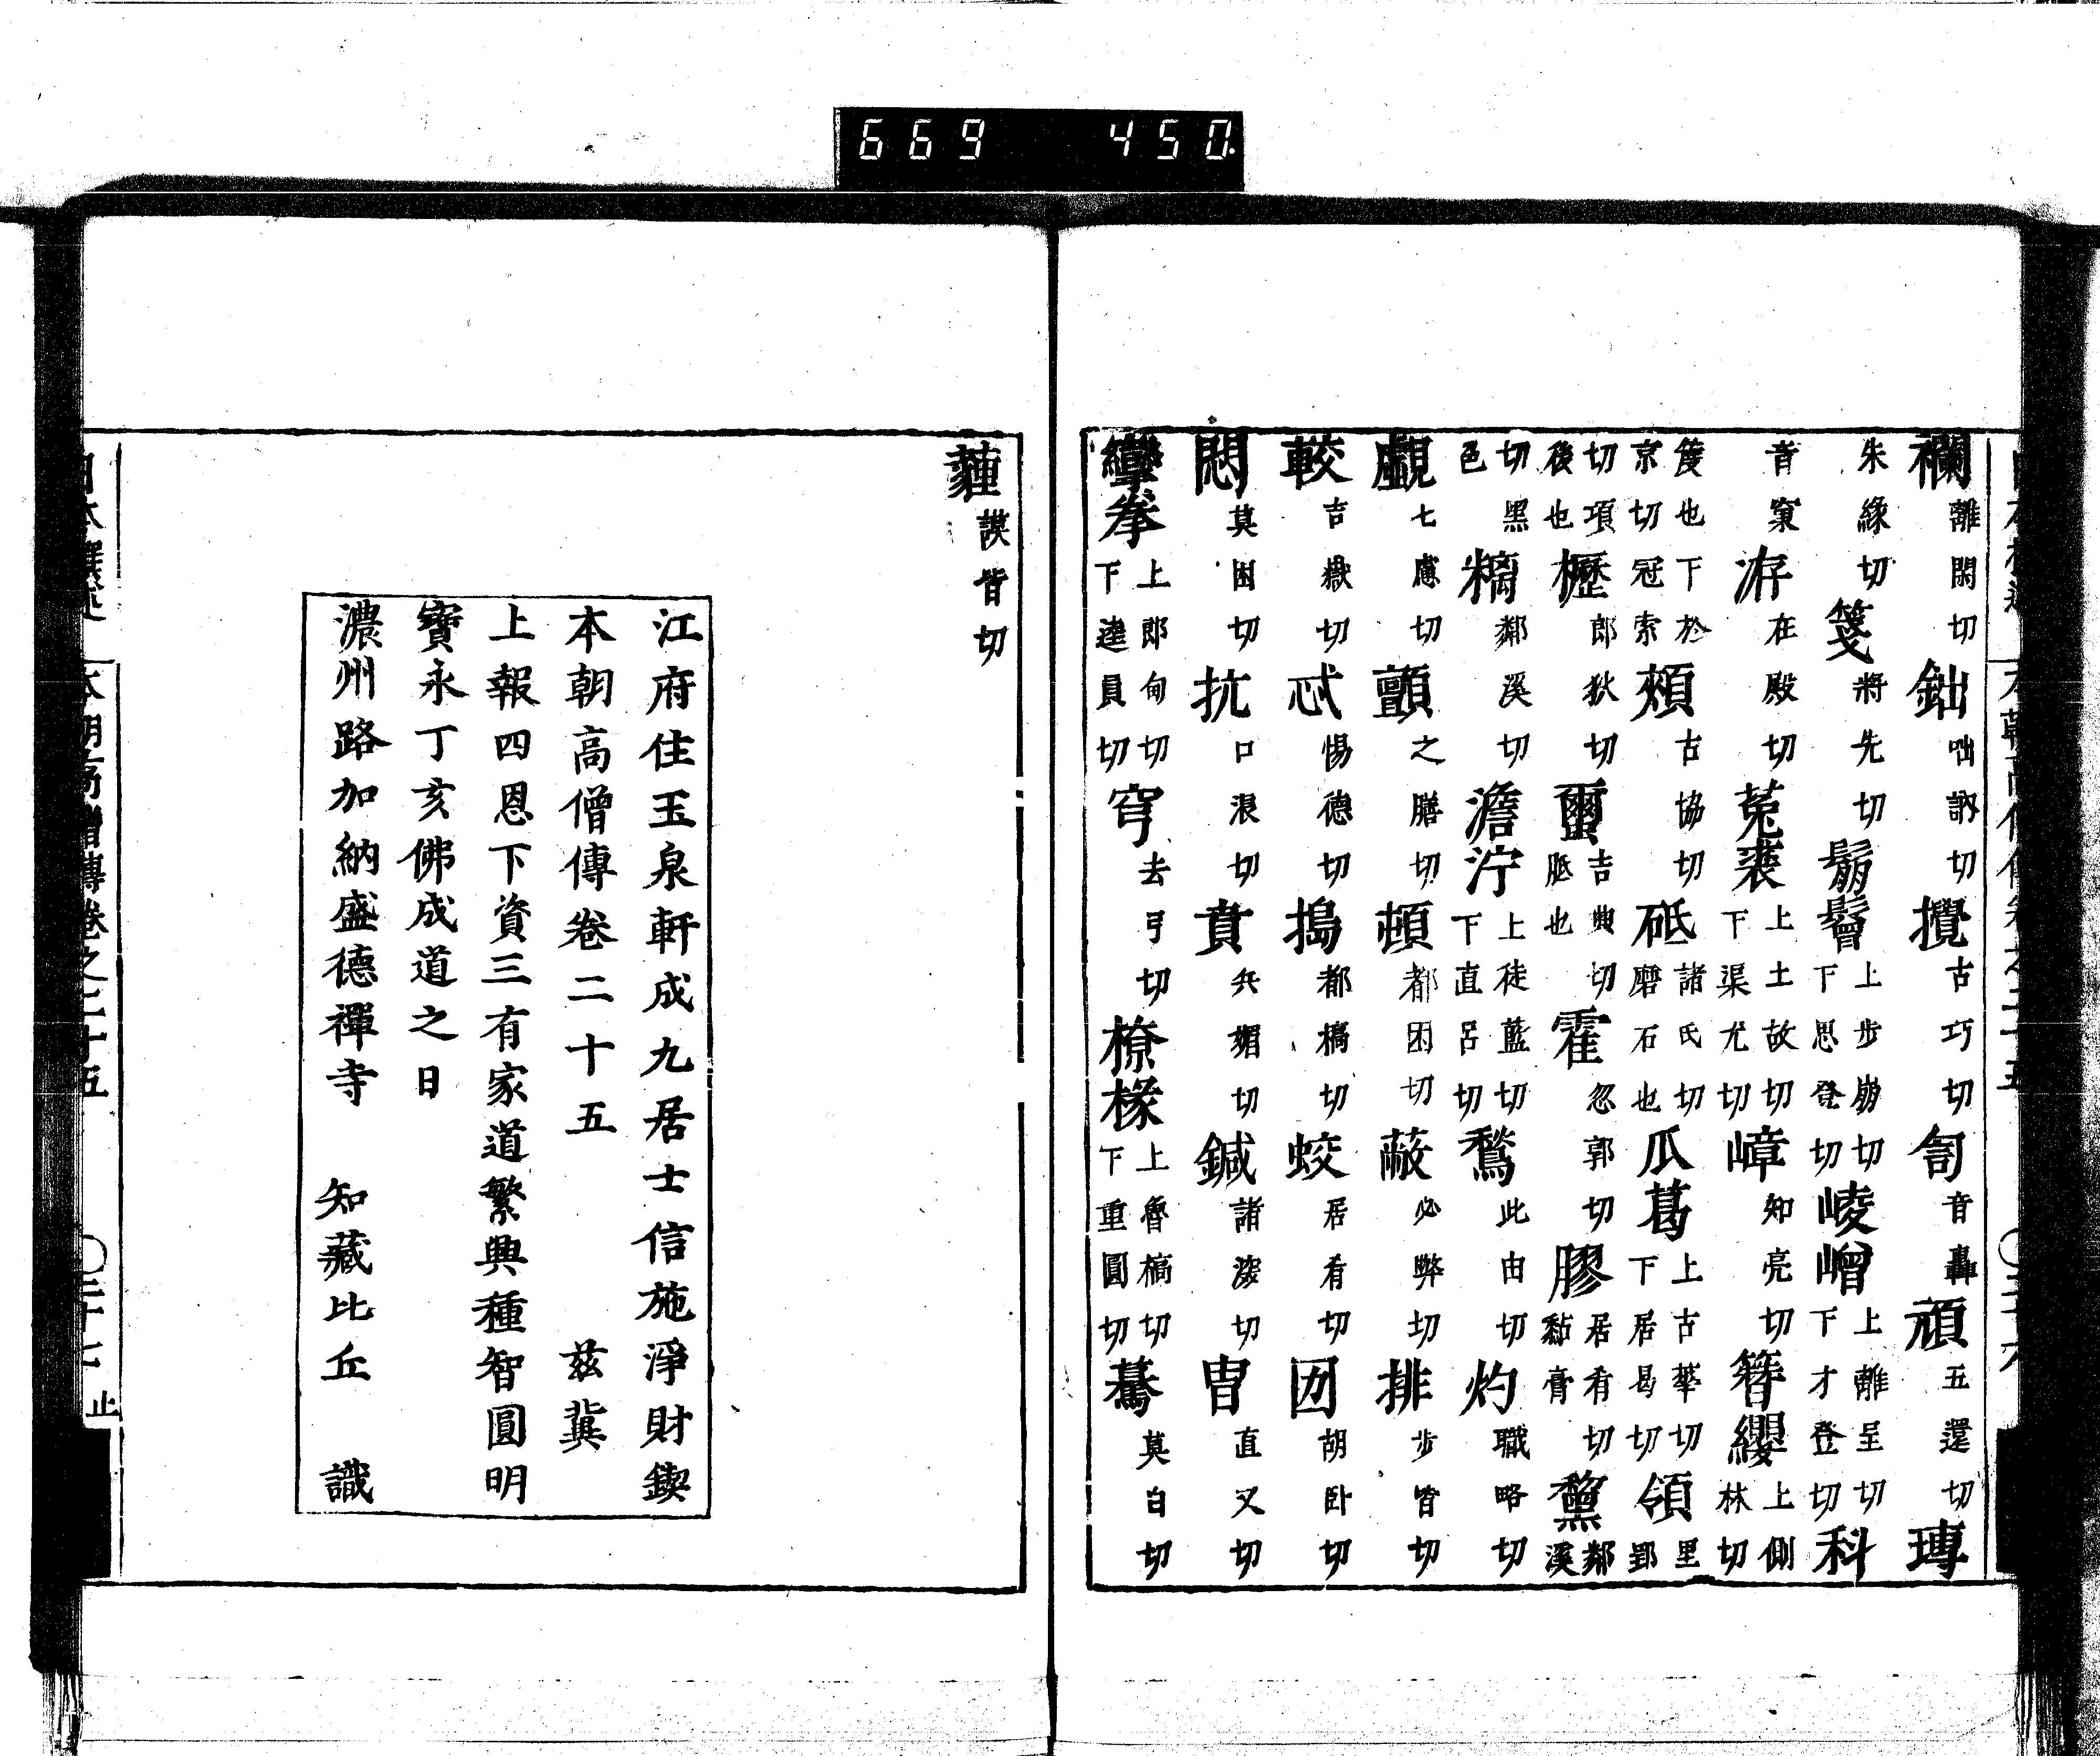 669 450
襴離閑切鈯咄訥切攪古巧切訇音轟頑五還切瑼
朱緣切箋將先切鬅鬙上步崩切下思登切崚嶒上離呈切下才登切科
音窠洊在殿切菟裘上土故切下渠尤切嶂知亮切簪纓上側林切
篗也下於京切冠索頰古協切砥諸氏切磨石也瓜葛上古華切下居曷切領里郢
切項後也櫪郎狄切䌍吉典切胝也霍忽郭切膠居肴切黏膏黧鄰溪
切黑色糯鄰溪切澹泞上徒藍切下直呂切鶖此由切灼職略切
覷七慮切顫之膳切頓都困切蔽必弊切排步皆切
較吉嶽切忒惕德切搗都槁切蛟居肴切囮胡臥切
悶莫困切抗口浪切賁兵媚切鍼諸深切冑直又切
攣拳上郎甸切下逵員切穹去弓切橑椽上魯槁切下重圓切驀莫白切
薶謨皆切
江府住玉泉軒成九居士信施淨財鍥
本朝高僧傳卷二十五　茲冀
上報四恩下資三有家道繁興種智圓明
寶永丁亥佛成道之日
濃州路加納盛德禪寺　知藏比丘　識
本朝高僧傳卷之二十五
二十七止